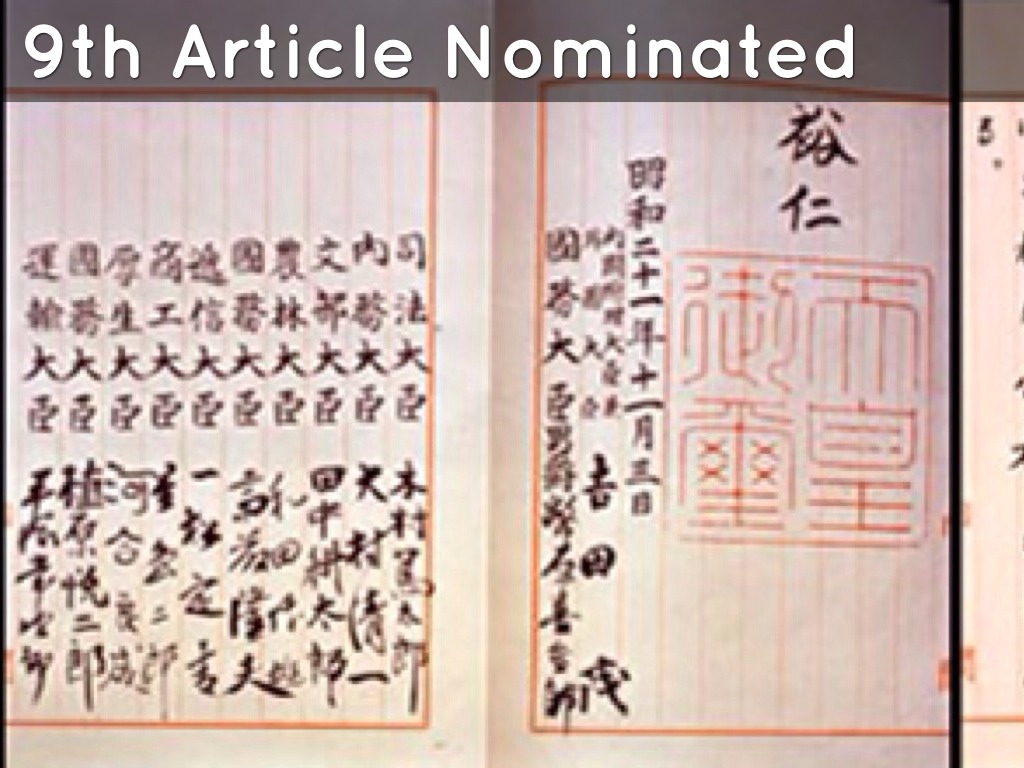 9th Article Nominated
裕仁
天皇
御璽
昭和二十一年十一月三日
内閣總理大臣兼
外務大臣 吉田茂
國務大臣 男爵 幣原喜重郎
司法大臣 木村篤太郎
内務大臣 大村清一
文部大臣 田中耕太郎
農林大臣 和田博雄
國務大臣 斎藤隆夫
遞信大臣 一松定吉
商工大臣 星島二郎
厚生大臣 河合良成
國務大臣 植原悦二郎
運輸大臣 平塚常次郎